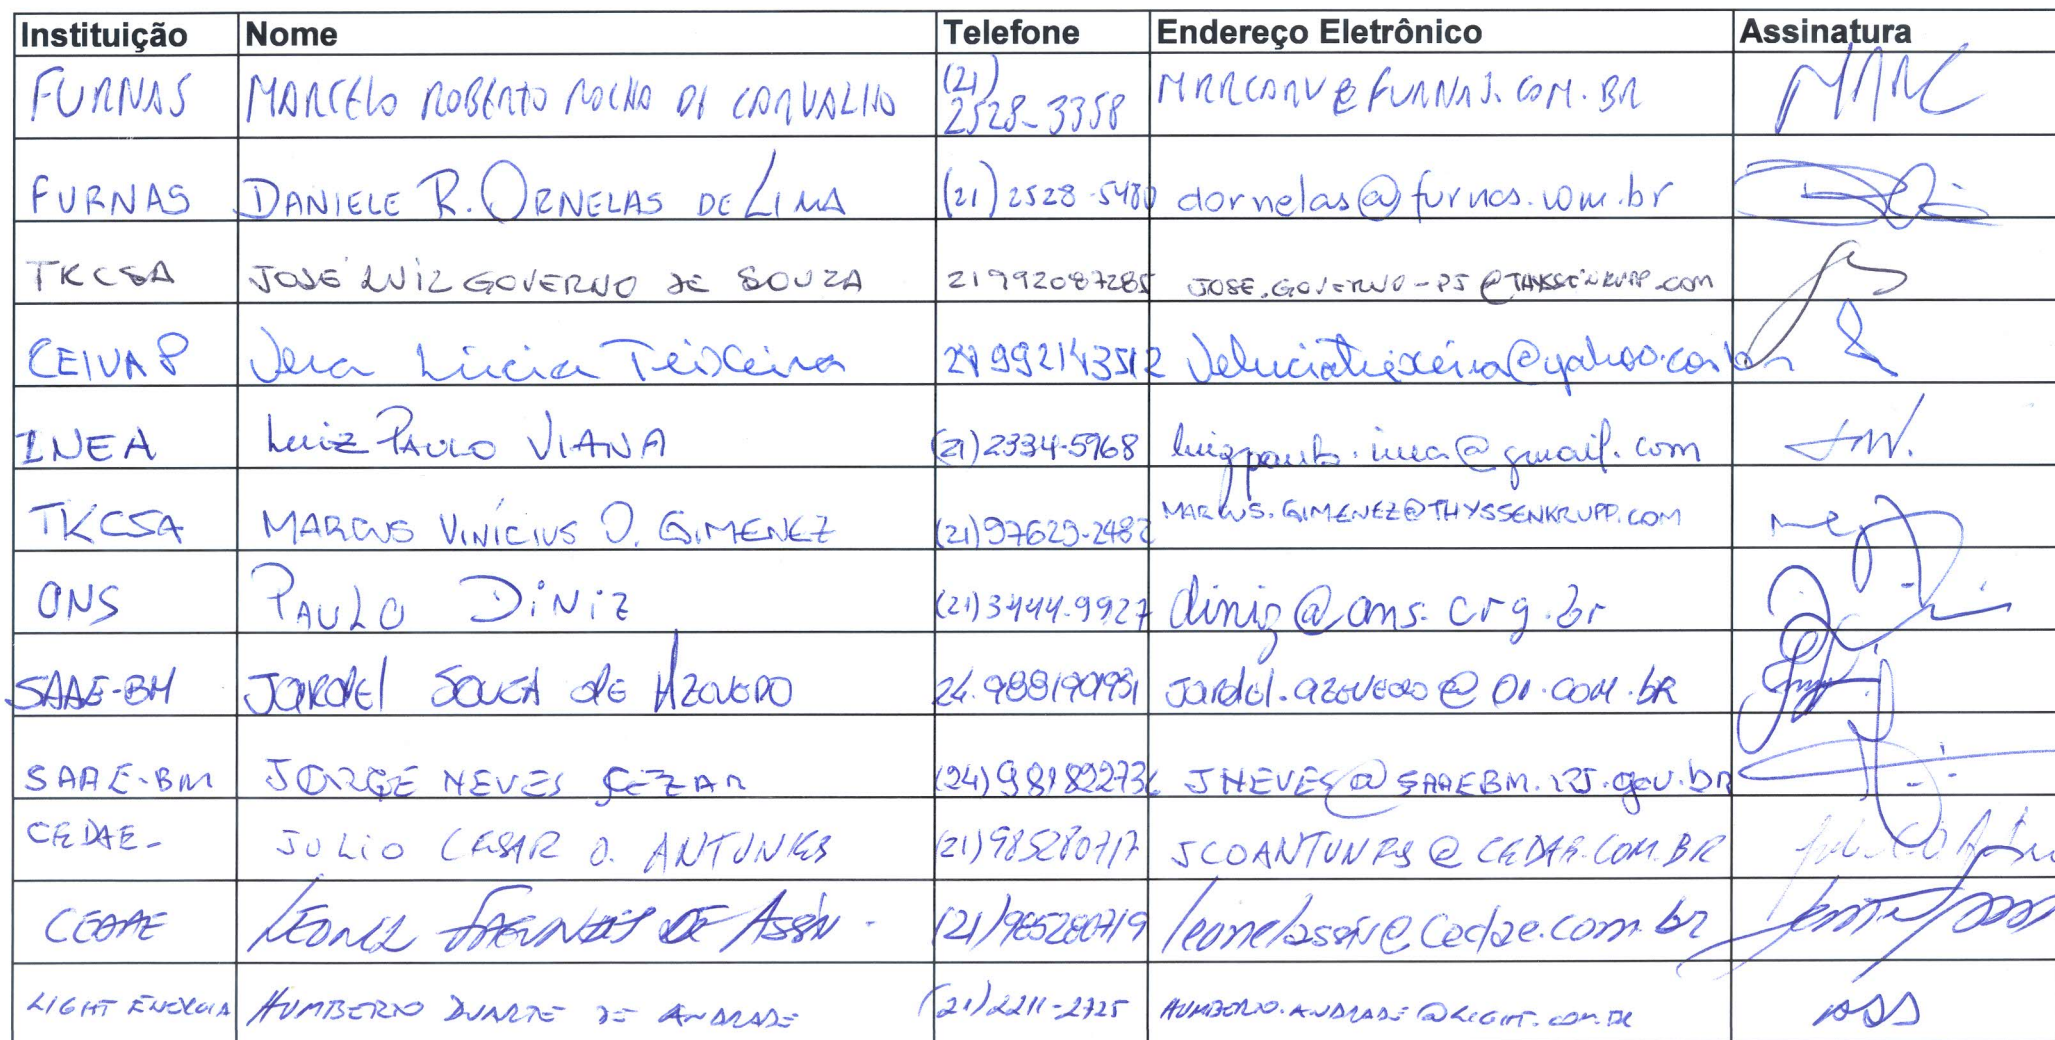 Instituição Nome Telefone Endereço Eletrônico Assinatura
FURNAS MARCELO ROBERTO ROCHA DE CARVALHO (21) 2528-3358 MRRCARV@FURNAS.COM.BR MRRC
FURNAS DANIELE R. ORNELAS DE LIMA (21) 2528-5480 dornelas@furnas.com.br
TKCSA JOSÉ LUIZ GOVERNO DE SOUZA 21992087285 JOSE.GOVERNO-PJ@THYSSENKRUPP.COM
CEIVAP Vera Lúcia Teixeira 21 992143512 veluciateixeira@yahoo.com.br
INEA Luiz PAULO VIANA (21)2334-5968 luizpaulo.inea@gmail.com
TKCSA MARCUS VINÍCIUS O. GIMENEZ (21)97629-2482 MARCUS.GIMENEZ@THYSSENKRUPP.COM
ONS PAULO DINIZ (21)3444-9927 diniz@ons.org.br
SAAE-BM JARDEL SOUZA DE AZEVEDO 24.988190931 jardel.azevedo@oi.com.br
SAAE-BM JORGE NEVES CEZAR (24)981822736 JNEVES@SAAEBM.RJ.gov.br
CEDAE- JULIO CESAR O. ANTUNES (21)985280717 JCOANTUNES@CEDAE.COM.BR
CEDAE LEONEL DE ASSIS (21)985280719 leonelassis@cedae.com.br
LIGHT ENERGIA HUMBERTO DUARTE DE ANDRADE (21)2211-2725 HUMBERTO.ANDRADE@LIGHT.COM.BR